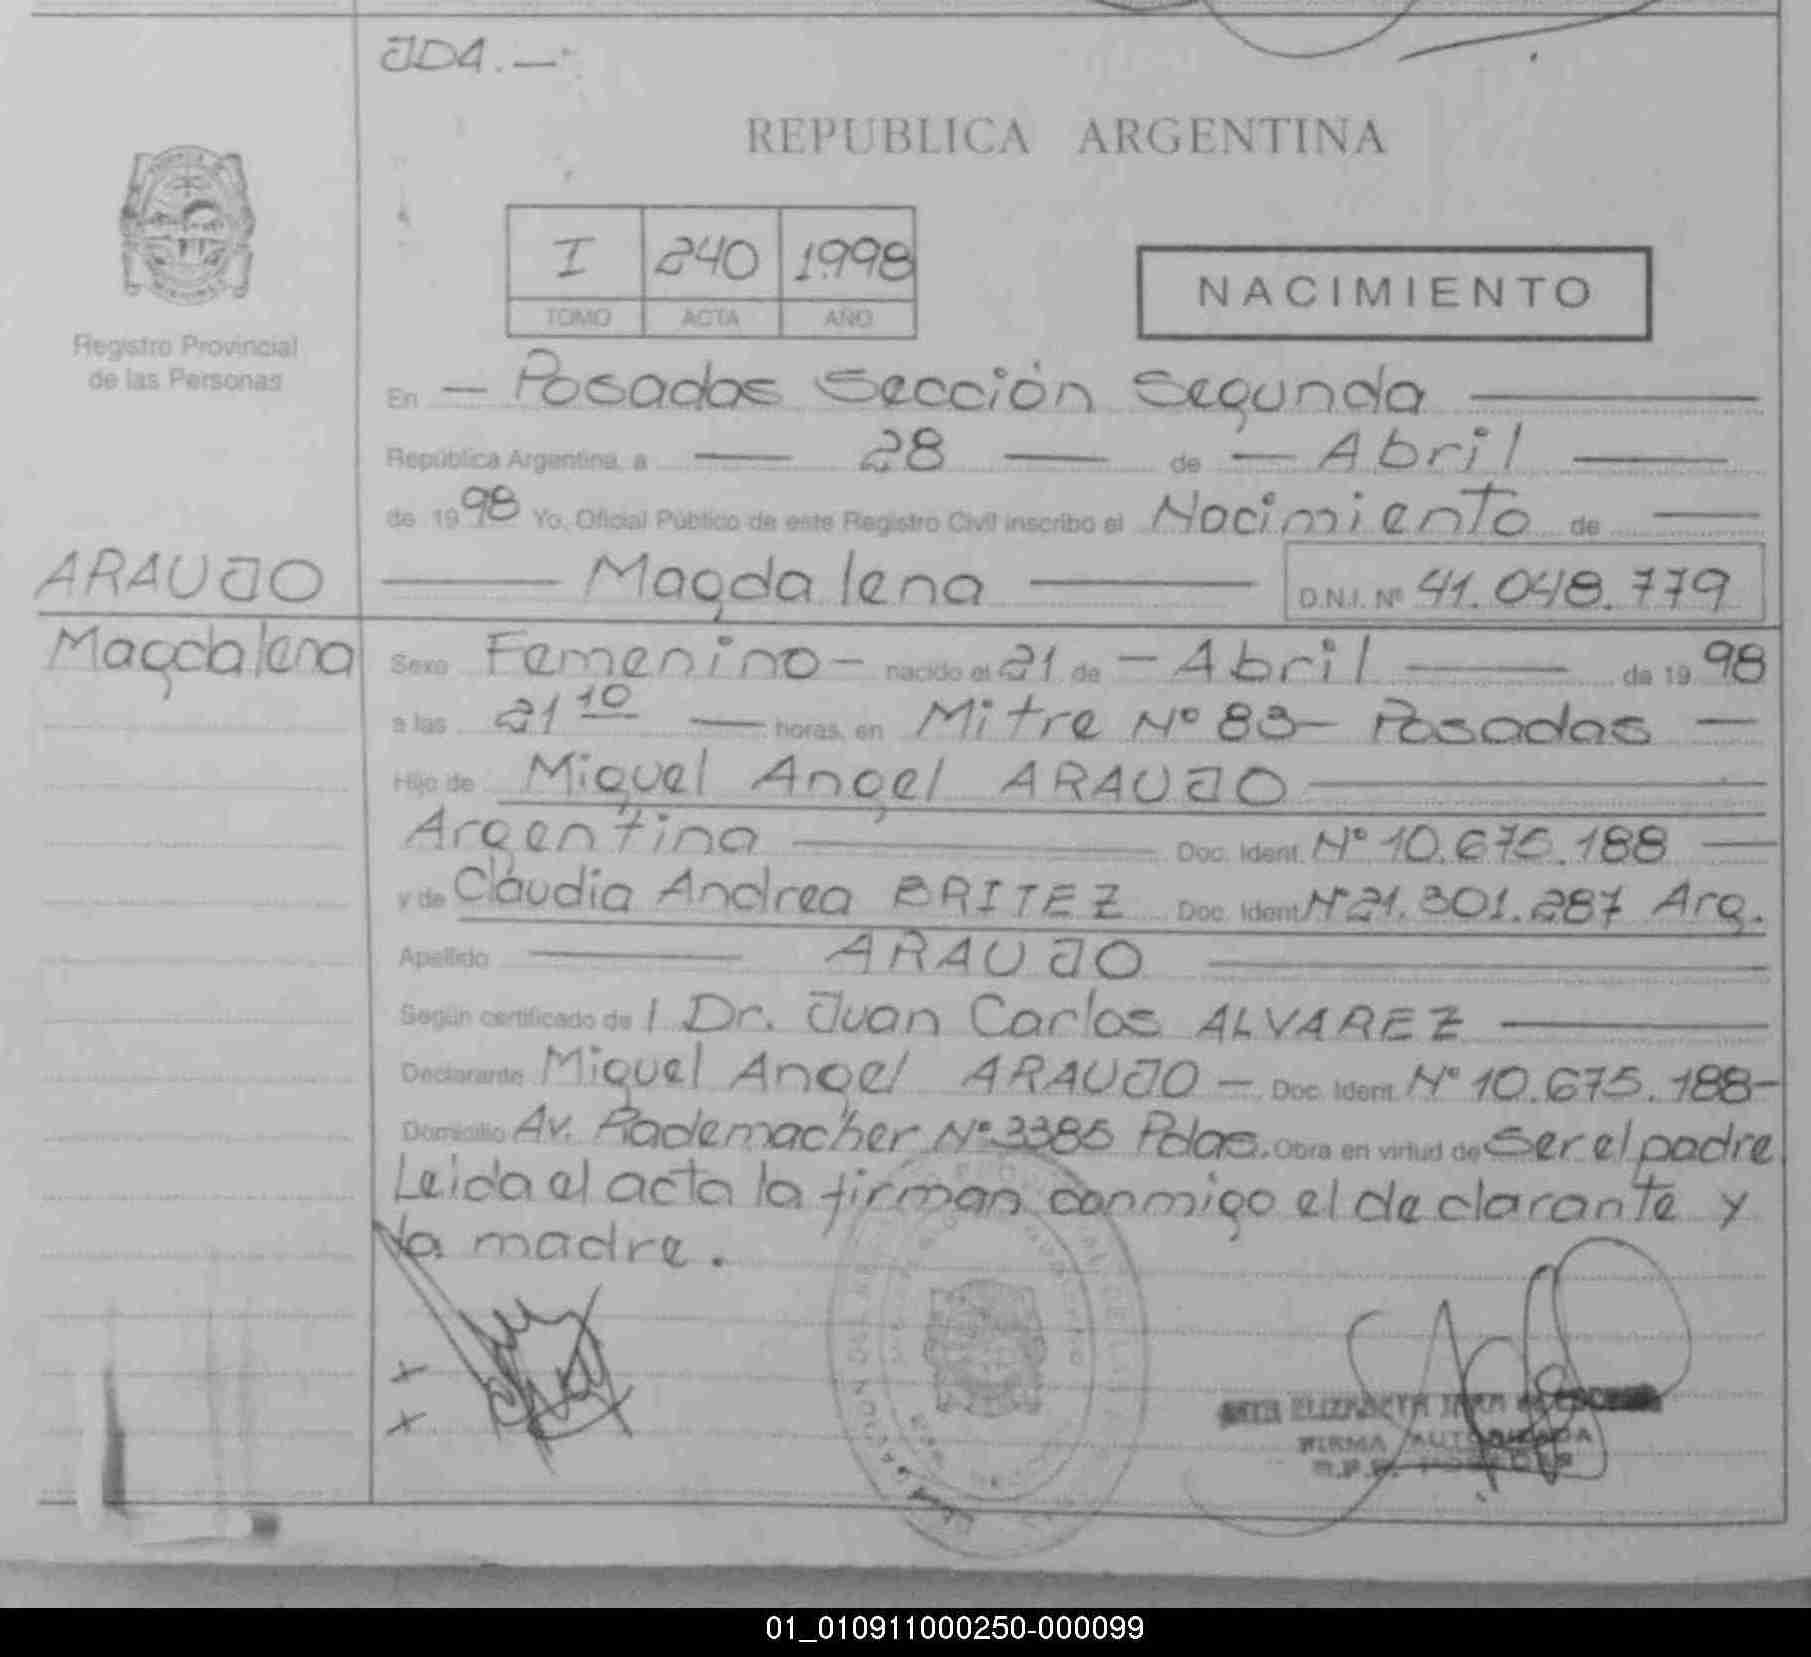 JDA.—
REPUBLICA ARGENTINA
I 240 1998
TOMO ACTA AÑO
NACIMIENTO
Registro Provincial
de las Personas
En — Posadas Sección Segunda —
República Argentina, a — 28 — de — Abril —
de 1998 Yo, Oficial Público de este Registro Civil inscribo el Nacimiento de —
ARAUJO — Magdalena — D.N.I. Nº 41.048.779
Magdalena
Sexo Femenino — nacido el 21 de — Abril — de 1998
a las 21 10 — horas, en Mitre Nº 83 — Posadas —
Hijo de Miguel Angel ARAUJO —
Argentina — Doc. Ident. Nº 10.675.188 —
y de Claudia Andrea BRITEZ Doc. Ident. Nº 21.301.287 Arg.
Apellido — ARAUJO —
Según certificado de l Dr. Juan Carlos ALVAREZ —
Declarante Miguel Angel ARAUJO — Doc. Ident. Nº 10.675.188 —
Domicilio Av. Rademacher Nº 3385 Pdas. Obra en virtud de Ser el padre
Leida el acta la firman conmigo el declarante y
la madre.
FIRMA AUTORIZADA
01_010911000250-000099